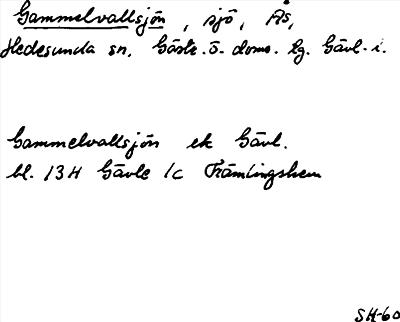 Gammelvallsjön, sjö, Ås,
Hedesunda sn, Gästr. ö. doms. tg. Gävl. i.
Gammelvallsjön ek Gävl.
bl. 13H Gävle 1c Främlingshem
SH-60